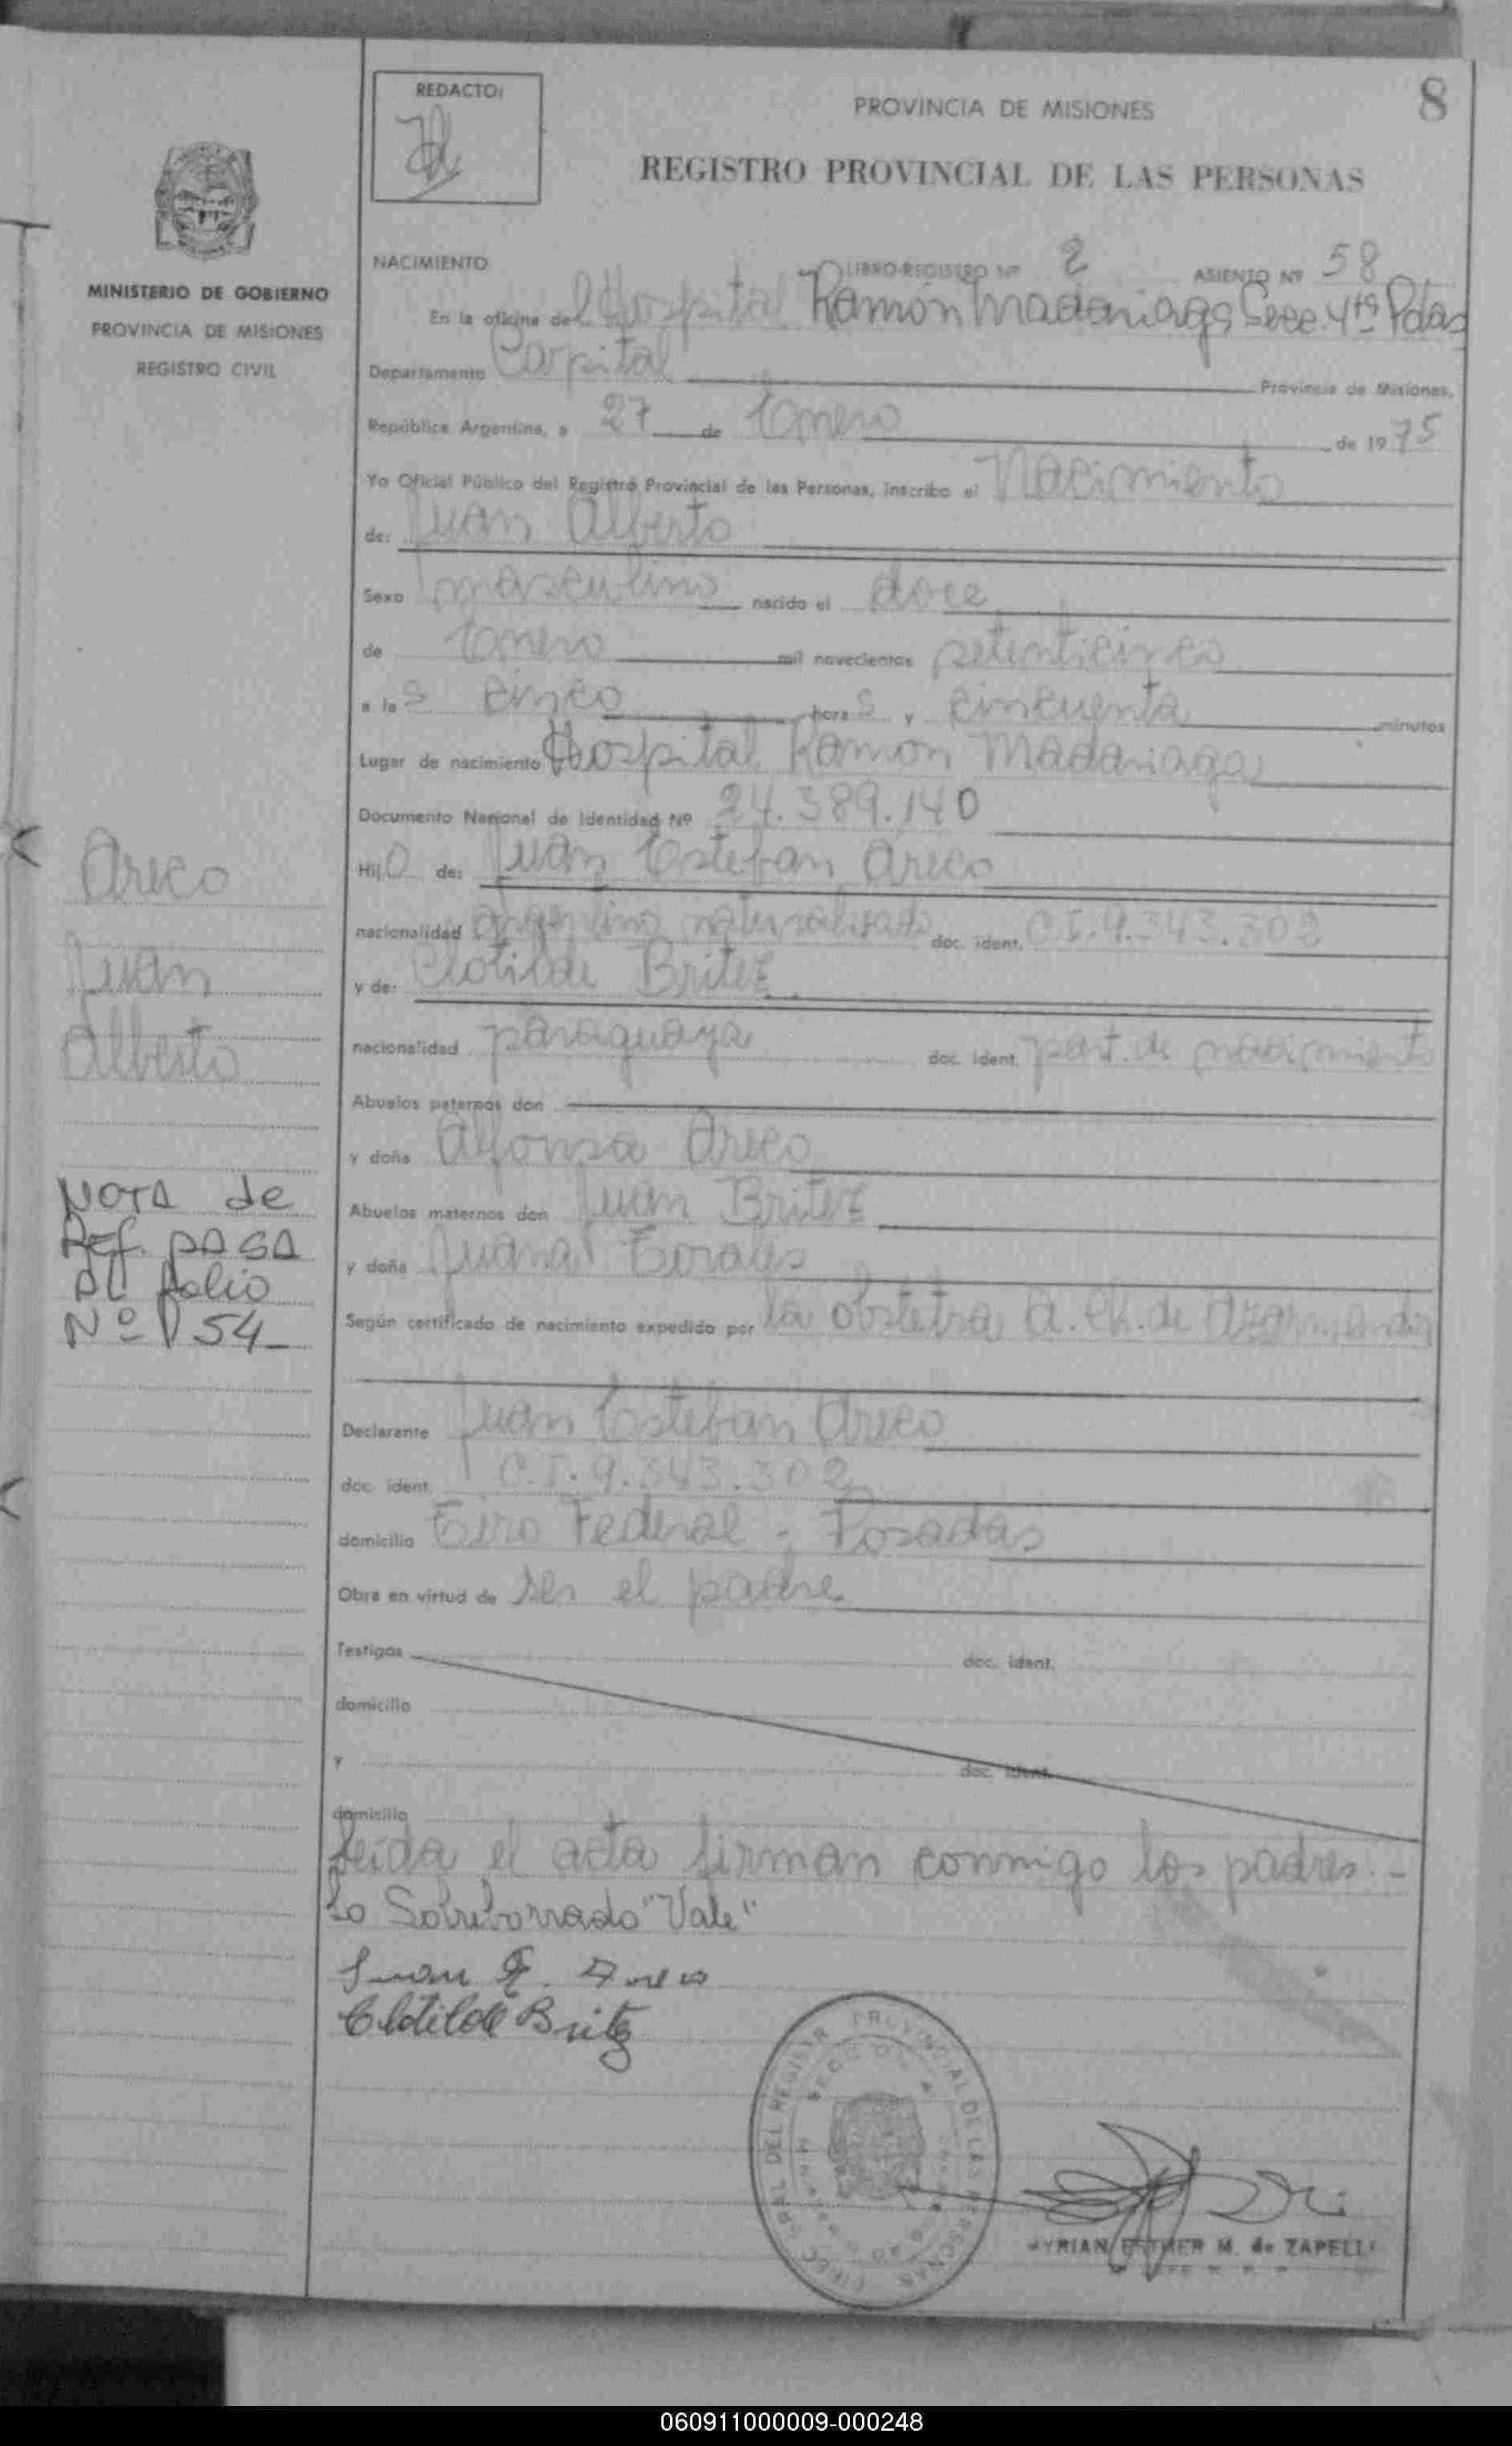 8
REDACTO:
PROVINCIA DE MISIONES
REGISTRO PROVINCIAL DE LAS PERSONAS
MINISTERIO DE GOBIERNO
PROVINCIA DE MISIONES
REGISTRO CIVIL
NACIMIENTO LIBRO-REGISTRO Nº 2 ASIENTO Nº 58
En la oficina del Hospital Ramón Madariaga Secc. 4ta Pdas
Departamento Capital Provincia de Misiones,
República Argentina, a 27 de Enero de 1975
Yo Oficial Público del Registro Provincial de las Personas, inscribo el Nacimiento
de: Juan Alberto
Sexo masculino nacido el doce
de Enero mil novecientos setenticinco
a las cinco horas y cincuenta minutos
Lugar de nacimiento Hospital Ramon Madariaga
Documento Nacional de Identidad Nº 24.389.140
Hijo de: Juan Esteban Areco
nacionalidad argentino naturalizado doc. ident. C.I. 9.343.302
y de: Clotilde Britez
nacionalidad paraguaya doc. ident. part. de nacimiento
Abuelos paternos don
y doña Alfonsa Areco
Abuelos maternos don Juan Britez
y doña Juana
Según certificado de nacimiento expedido por la obstetra A. Ch. de
Declarante Juan Esteban Areco
doc. ident. C.I. 9.343.302
domicilio Tiro Federal - Posadas
Obra en virtud de ser el padre
Testigos doc. ident.
domicilio
y doc. ident.
domicilio
Leida el acta firman conmigo los padres.-
Lo Sobreborrado "Vale"
Juan E. Areco
Clotilde Britez
MYRIAN ESTHER M. de ZAPELLI
Areco
Juan
Alberto
NOTA de
Ref. PASA
AL folio
Nº 154
060911000009-000248